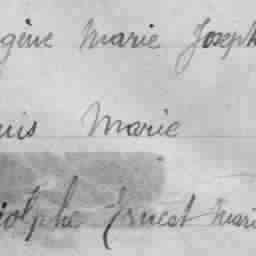 gène Marie Joseph
uis Marie
dolphe Ernest Marie